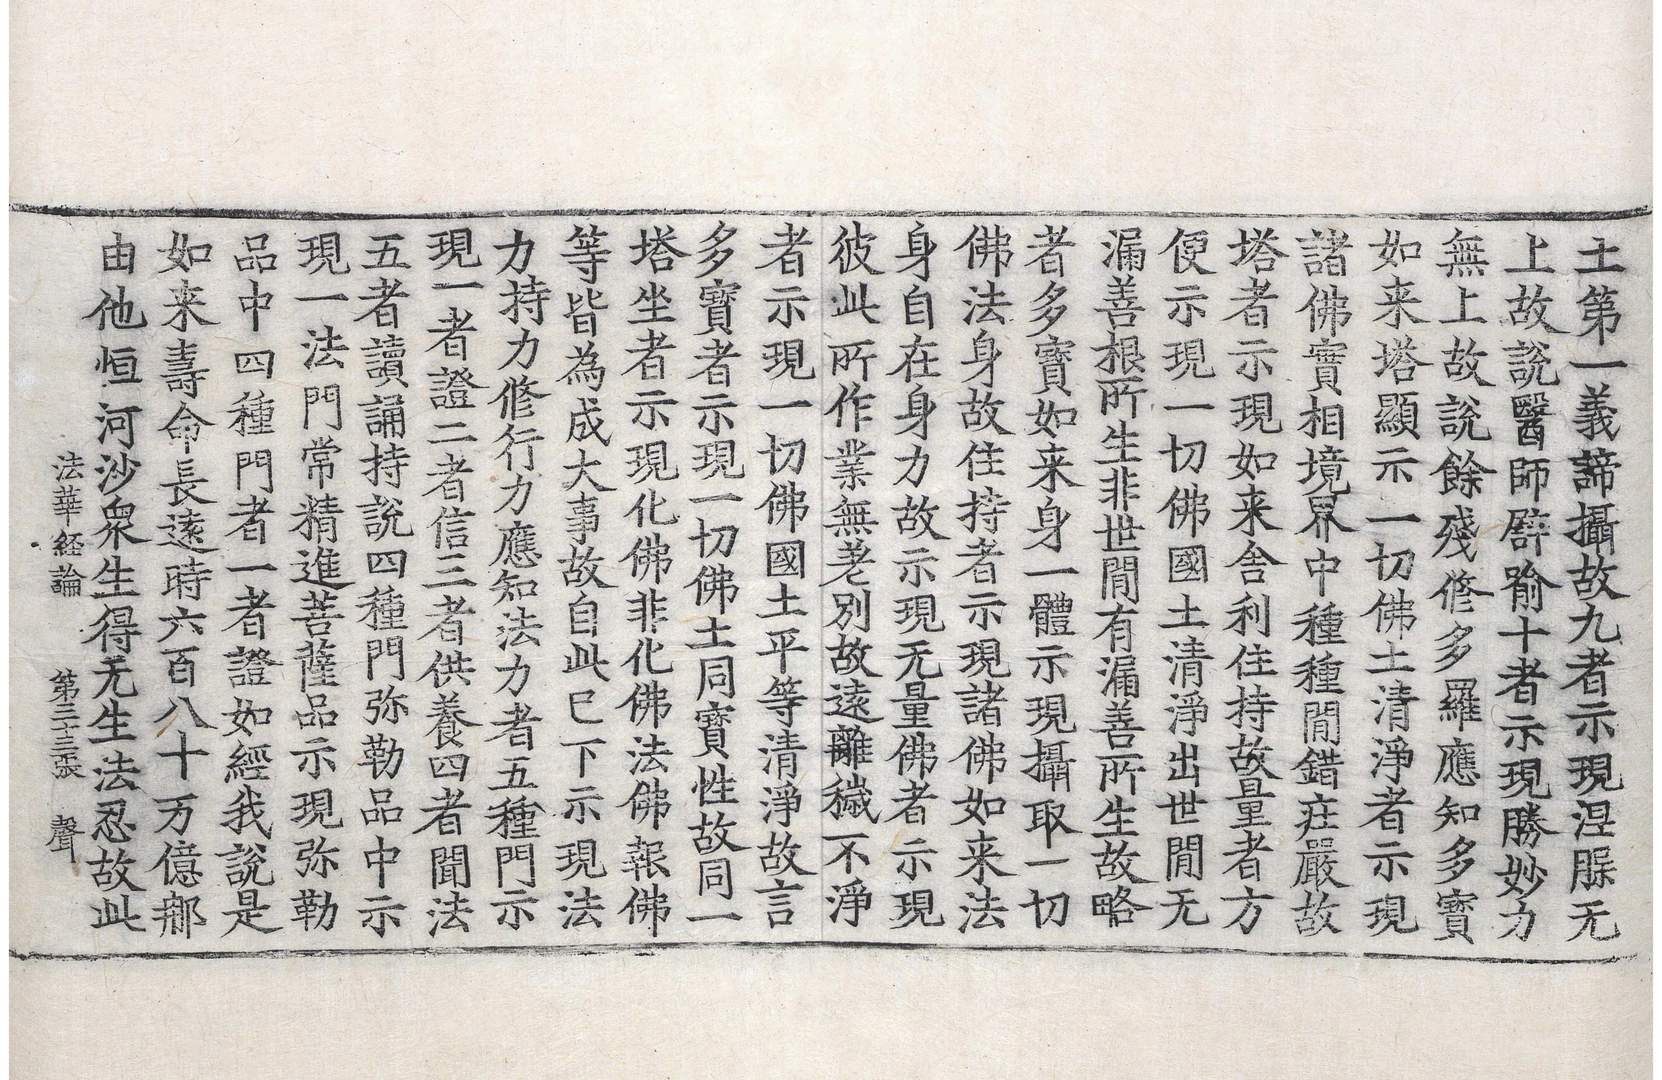 土第一義諦攝故九者示現涅脲无
上故說醫師譬喻十者示現勝妙力
無上故說餘殘修多羅應知多寶
如来塔顯示一切佛土清淨者示現
諸佛實相境界中種種間錯莊嚴故
塔者示現如来舍利住持故量者方
便示現一切佛國土清淨出世間无
漏善根所生非世間有漏善所生故略
者多寶如来身一體示現攝取一切
佛法身故住持者示現諸佛如来法
身自在身力故示現无量佛者示現
彼此所作業無差別故遠離穢不淨
者示現一切佛國土平等清淨故言
多寶者示現一切佛土同寶性故同一
塔坐者示現化佛非化佛法佛報佛
等皆為成大事故自此已下示現法
力持力修行力應知法力者五種門示
現一者證二者信三者供養四者聞法
五者讀誦持說四種門弥勒品中示
現一法門常精進菩薩品示現弥勒
品中四種門者一者證如經我說是
如来壽命長遠時六百八十万億那
由他恒河沙衆生得无生法忍故此
法華経論　第三十三張　聲